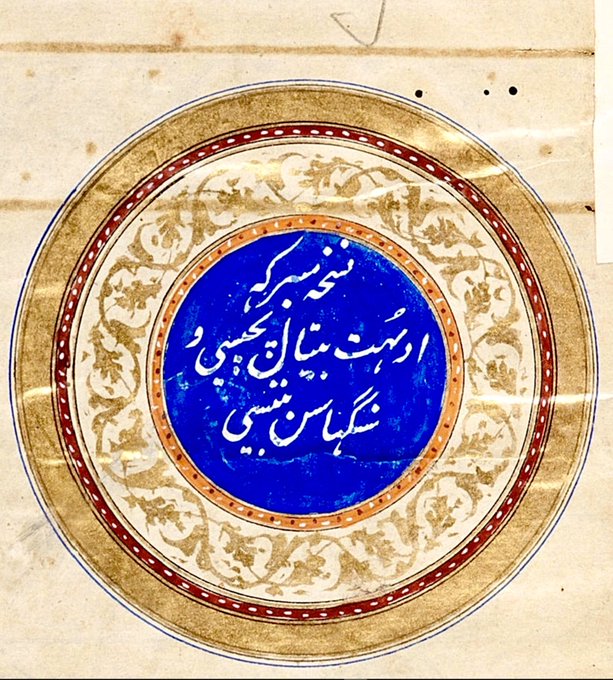 نسخه متبرکه
ادبهت بیتال پچیسی و
سنگهاسن بتیسی